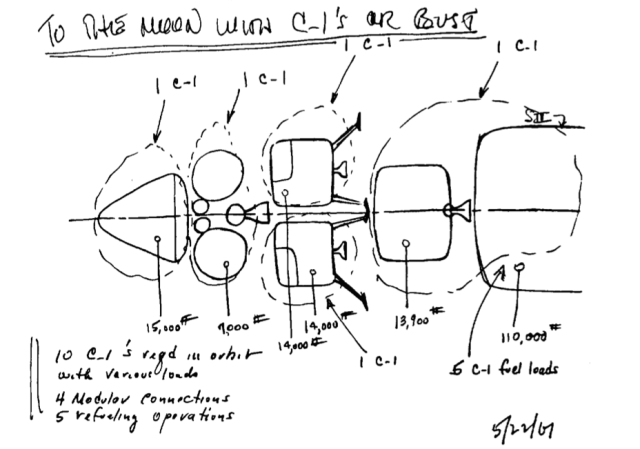 TO THE MOON WITH C-1's OR BUST
1 C-1
1 C-1
1 C-1
1 C-1
SII
15,000#
9,000#
14,000#
14,000#
13,900#
110,000#
1 C-1
5 C-1 fuel loads
10 C-1's reqd in orbit
with various loads
4 Modular connections
5 refueling operations
5/22/61